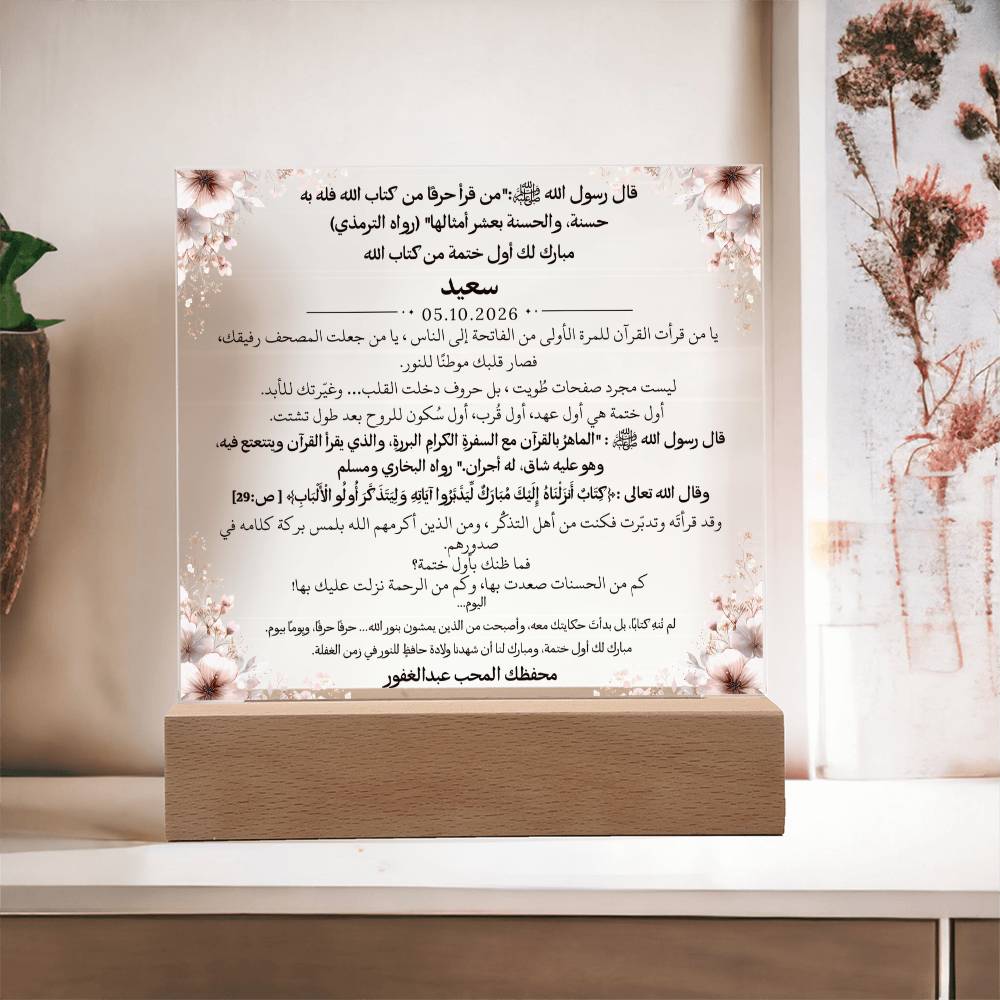 قال رسول الله ﷺ:"من قرأ حرفًا من كتاب الله فله به
حسنة، والحسنة بعشر أمثالها" (رواه الترمذي)
مبارك لك أول ختمة من كتاب الله
سعيد
05.10.2026
يا من قرأت القرآن للمرة الأولى من الفاتحة إلى الناس ، يا من جعلت المصحف رفيقك،
فصار قلبك موطنًا للنور.
ليست مجرد صفحات طُويت ، بل حروف دخلت القلب... وغيّرتك للأبد.
أول ختمة هي أول عهد، أول قُرب، أول سُكون للروح بعد طول تشتت.
قال رسول الله ﷺ : "الماهرُ بالقرآن مع السفرةِ الكرامِ البررةِ، والذي يقرأ القرآن ويتتعتع فيه،
وهو عليه شاق، له أجران." رواه البخاري ومسلم
وقال الله تعالى :﴿كِتَابٌ أَنزَلْنَاهُ إِلَيْكَ مُبَارَكٌ لِّيَدَّبَّرُوا آيَاتِهِ وَلِيَتَذَكَّرَ أُولُو الْأَلْبَابِ﴾ [ ص:29]
وقد قرأتَه وتدبّرت فكنت من أهل التذكُّر ، ومن الذين أكرمهم الله بلمس بركة كلامه في
صدورهم.
فما ظنك بأول ختمة؟
كم من الحسنات صعدت بها، وكم من الرحمة نزلت عليك بها!
اليوم...
لم تُنهِ كتابًا، بل بدأتَ حكايتك معه، وأصبحت من الذين يمشون بنور الله... حرفًا حرفًا، ويومًا بيوم.
مبارك لك أول ختمة، ومبارك لنا أن شهدنا ولادة حافظٍ للنور في زمن الغفلة.
محفظك المحب عبدالغفور